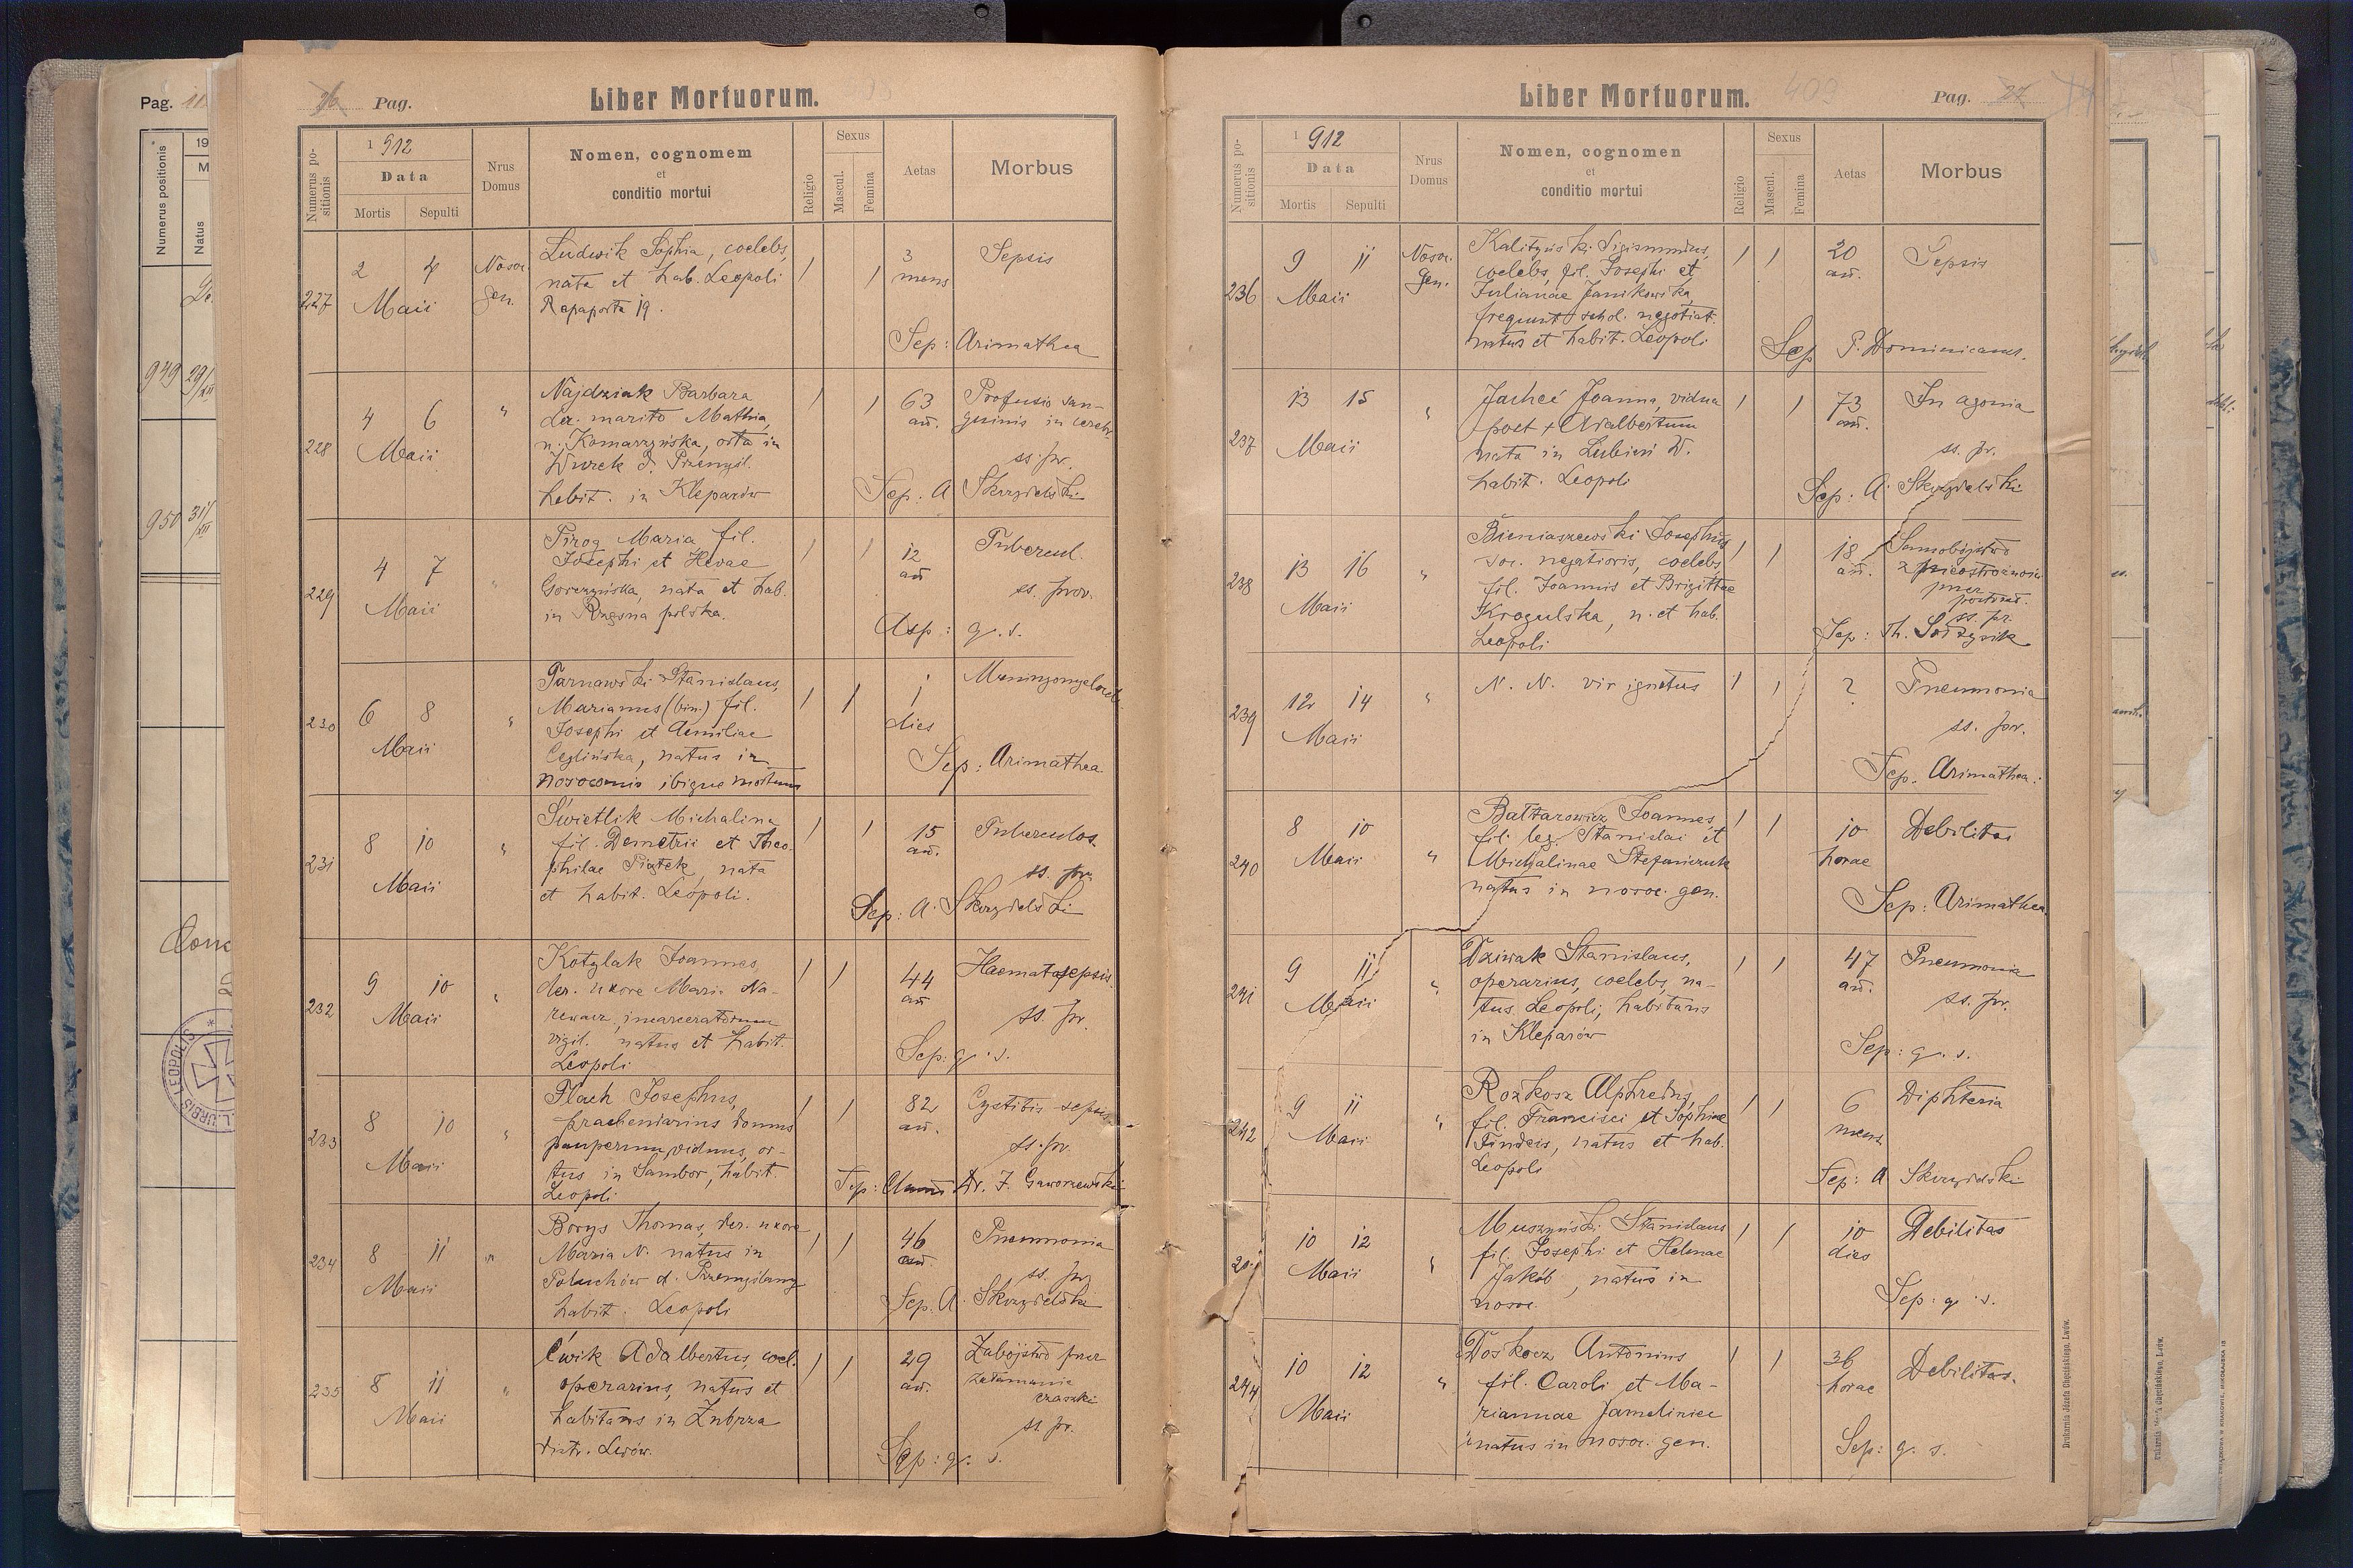 Pag. 11
Numerus positionis
19
M
Natus
949 29/XII
950 31/XII
LEOPOLIS
26 Pag.
Liber Mortuorum.
Numerus positionis
1912
Data
Mortis
Sepulti
Nrus Domus
Nomen, cognomen
et
conditio mortui
Religio
Sexus
Mascul.
Femina
Aetas
Morbus
227
2 4
Maii
Nosoc. gen.
Ludwik Sophia, coelebs,
nata et hab. Leopoli
Rapaporta 19.
1 1
3 mens
Sepsis
Sep: Arimathea
228
4 6
Maii
"
Najdziak Barbara
der. marito Mathia,
n. Komarzyńska, orta in
d. Przemyśl.
habit. in Kleparów
1 1
63 an.
Profusio san-
guinis in cerebr.
ss. pr.
Sep: A Skrzydelski
229
4 7
Maii
"
Pirog Maria fil.
Josephi et Hevae
Gorczyńska, nata et hab.
in Rzęsna polska.
1 1
12 an
Tubercul.
ss. prov.
Asp: q. s.
230
6 8
Maii
"
Tarnawski Stanislaus,
Marianus (bin.) fil.
Josephi et Aemiliae
Ceglińska, natus in
nosocomio ibique mortuus
1 1
1 dies
Sep: Arimathea
231
8 10
Maii
"
Świetlik Michalina
fil. Demetrii et Theo-
philae Piątek, nata
et habit. Leopoli.
1 1
15 an.
Tuberculos.
ss. pr.
Sep: A. Skrzydelski
232
9 10
Maii
"
Kotylak Joannes,
der. uxore Maria Na-
rewacz, incarceratorum
vigil. natus et habit.
Leopoli
1 1
44 an
Haematosepsis
ss. pr.
Sep: q. s.
233
8 10
Maii
"
Flach Josephus,
praebendarius domus
pauperum, viduus, or-
tus in Sambor, habit.
Leopoli
1 1
82 an.
Cystitis
ss. pr.
Sep: Dr. J. Gaworzewski
234
8 11
Maii
"
Borys Thomas, der. uxore
Maria N. natus in
Poluchów d. Przemyślany
habit. Leopoli
1 1
46 an.
Pneumonia
ss. pr
Sep. A. Skrzydelski
235
8 11
Maii
"
Ćwik Adalbertus, coel.
operarius, natus et
habitans in Zubrza
distr. Lwów.
1 1
29 an.
Zabójstwo przez
załamanie
czaszki
ss. pr.
Sep: q. s.
Liber Mortuorum.
409
Pag. 27
Numerus positionis
1912
Data
Mortis
Sepulti
Nrus Domus
Nomen, cognomen
et
conditio mortui
Religio
Sexus
Mascul.
Femina
Aetas
Morbus
236
9 11
Maii
Nosoc. Gen.
Kalityński Sigismundus,
coelebs, fil. Josephi et
Julianae Janikowska,
frequent. schol. negotiat.
natus et habit. Leopoli
1 1
20 an.
Sepsis
Sep P. Dominicanus.
237
13 15
Maii
"
Joanna, vidua
post + Adalbertum
nata in Lubień W.
habit. Leopoli
1 1
73 an.
In agonia
ss. pr.
Sep: A. Skrzydelski
238
13 16
Maii
"
Bieniaszewski Josephus
soc. negotioris, coelebs,
fil. Joannis et Brigittae
Krogulska, n. et hab.
Leopoli
1 1
18 an.
Samobójstwo
z nieostrożności
przez
postrzał.
ss. pr.
Sep: Th.
239
12 14
Maii
"
N. N. vir ignotus
1 1
?
Pneumonia
ss. pr.
Sep. Arimathea.
240
8 10
Maii
"
Baltarowicz Joannes,
fil. leg. Stanislai et
Michalinae Stefaniczuk
natus in nosoc. gen.
1 1
10 horae
Debilitas
Sep: Arimathea.
241
9 11
Maii
"
Dziwak Stanislaus,
operarius, coelebs, na-
tus Leopoli, habitans
in Kleparów
1 1
47 an.
Pneumonia
ss. pr.
Sep: q. s.
242
9 11
Maii
"
Rozkosz Alphredus,
fil. Francisci et Sophiae
Finders, natus et hab.
Leopoli
1 1
6 mens.
Diphteria
Sep: A Skrzydelski
10 12
Maii
"
Muszyński Stanislaus
fil. Josephi et Helenae
Jakób, natus in
nosoc.
1 1
10 dies
Debilitas
Sep: q. s.
244
10 12
Maii
"
Doskocz Antonius
fil. Caroli et Ma-
riannae Jameliniec
natus in nosoc. gen.
1 1
36 horae
Debilitas.
Sep: q. s.
Drukarnia Józefa Chęcińskiego, Lwów.